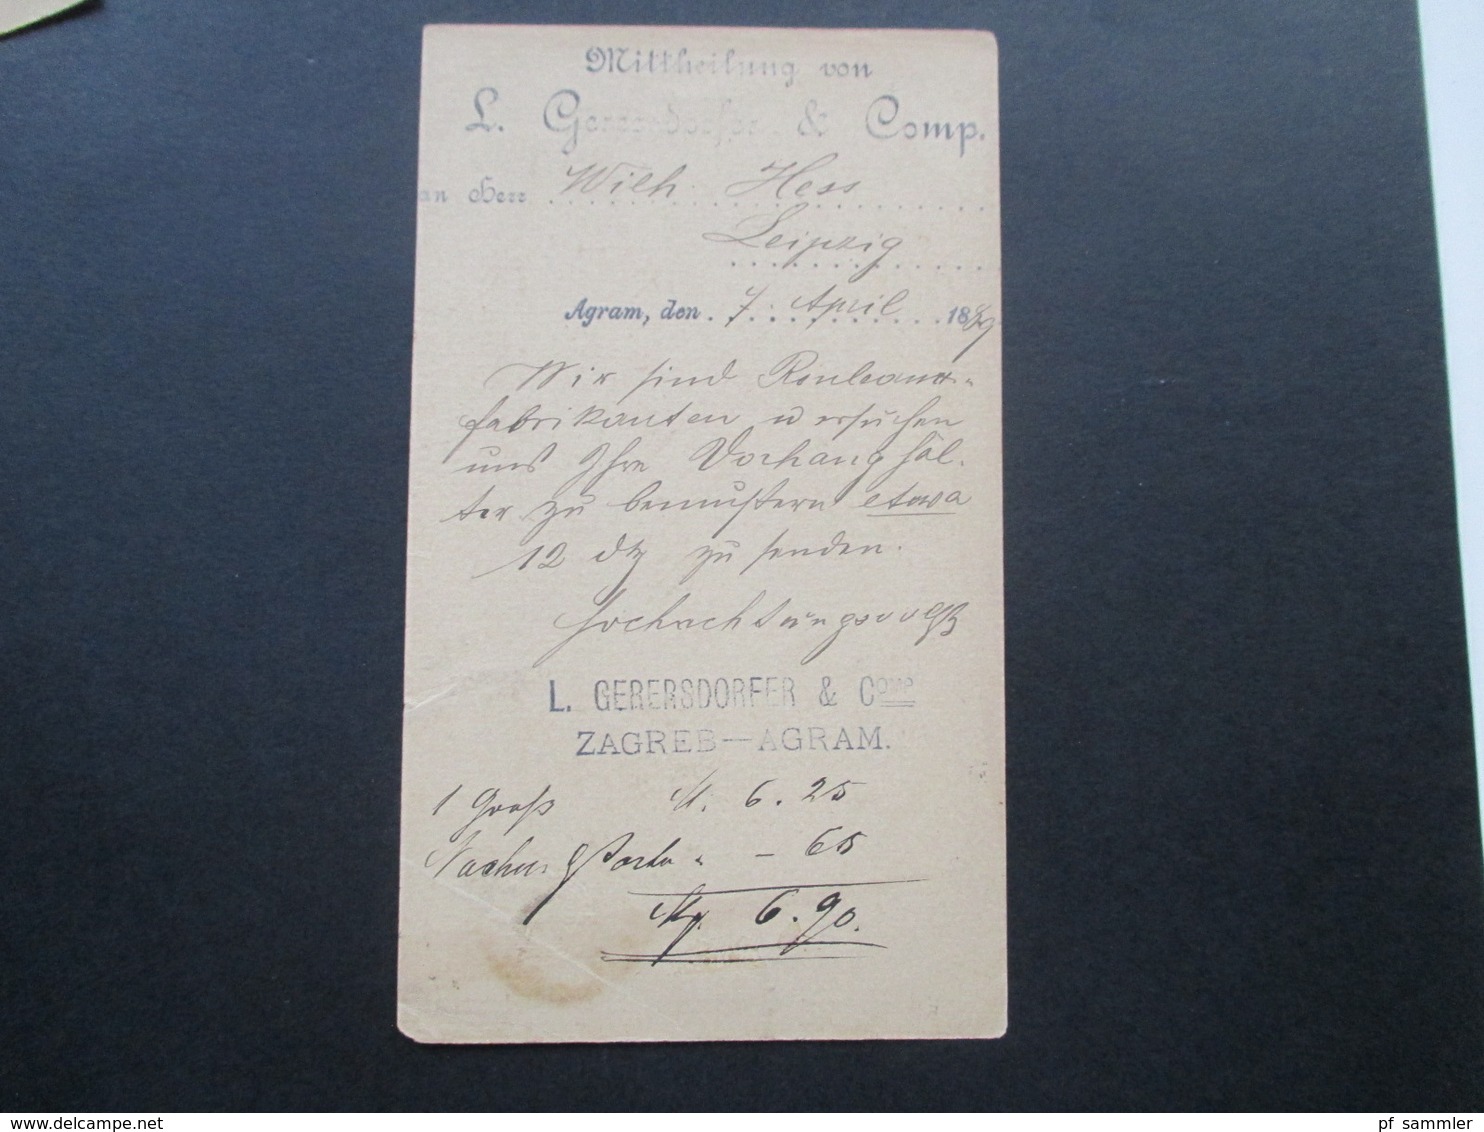 Mittheilung von
L. Gerersdorfer & Comp.
an Herr Wilh. Hess
Leipzig
Agram, den 7 April 1889
Wir sind Rouleaux-
fabrikanten u ersuchen
uns Ihre Vorhanghäl-
ter zu bemustern etwa
12 dtz zu senden.
Hochachtungsvollst
L. GERERSDORFER & Comp
ZAGREB—AGRAM.
1 Groß M. 6.25
Nachn. Porto " – 65
Mk. 6.90.
www.delcampe.net
pf_sammler